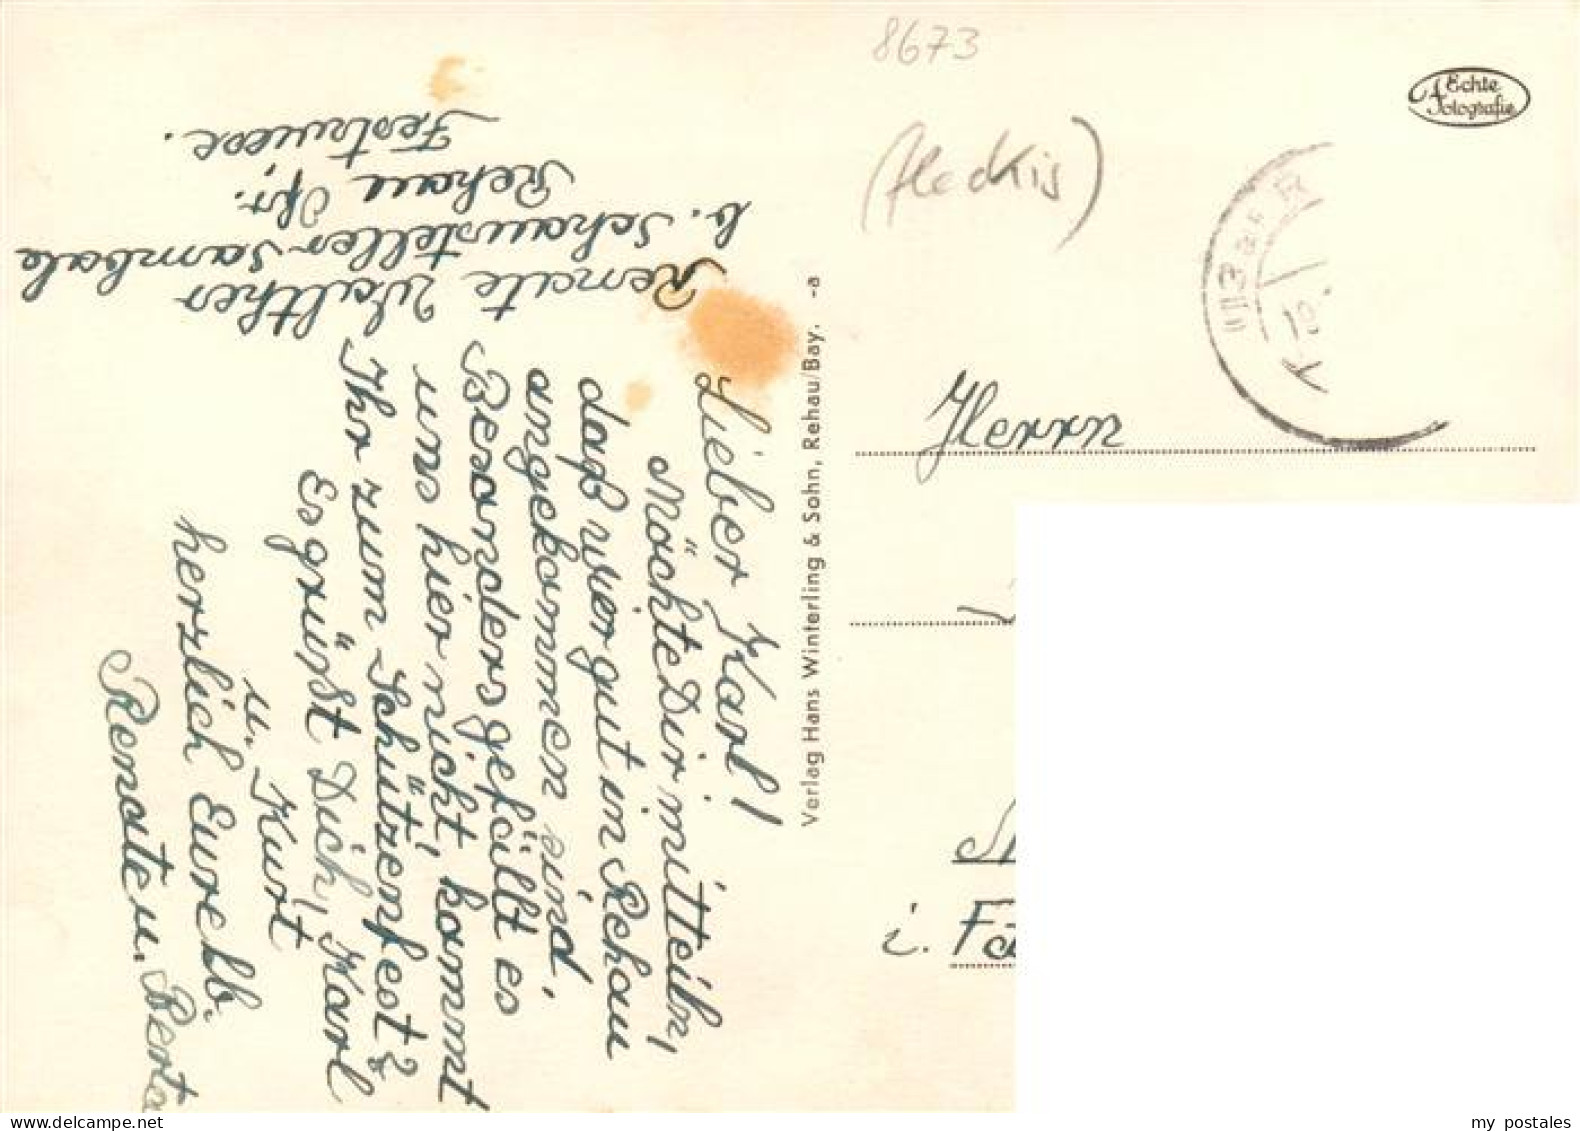 Renate Walther
b. Schausteller Sambale
Rehau Ofr.
Festwiese.
Lieber Karl!
Möchte Dir mitteiln,
daß wir gut in Rehau
angekommen sind.
Besonders gefällt es
uns hier nicht, kommt
Ihr zum Schützenfest?
Es grüßt Dich, Karl
u. Kurt
herzlich Eure lb.
Renate u. Berta
Verlag Hans Winterling & Sohn, Rehau/Bay. -a
8673
(fleckig)
Echte
Fotografie
Herrn
i. Fa
my postales